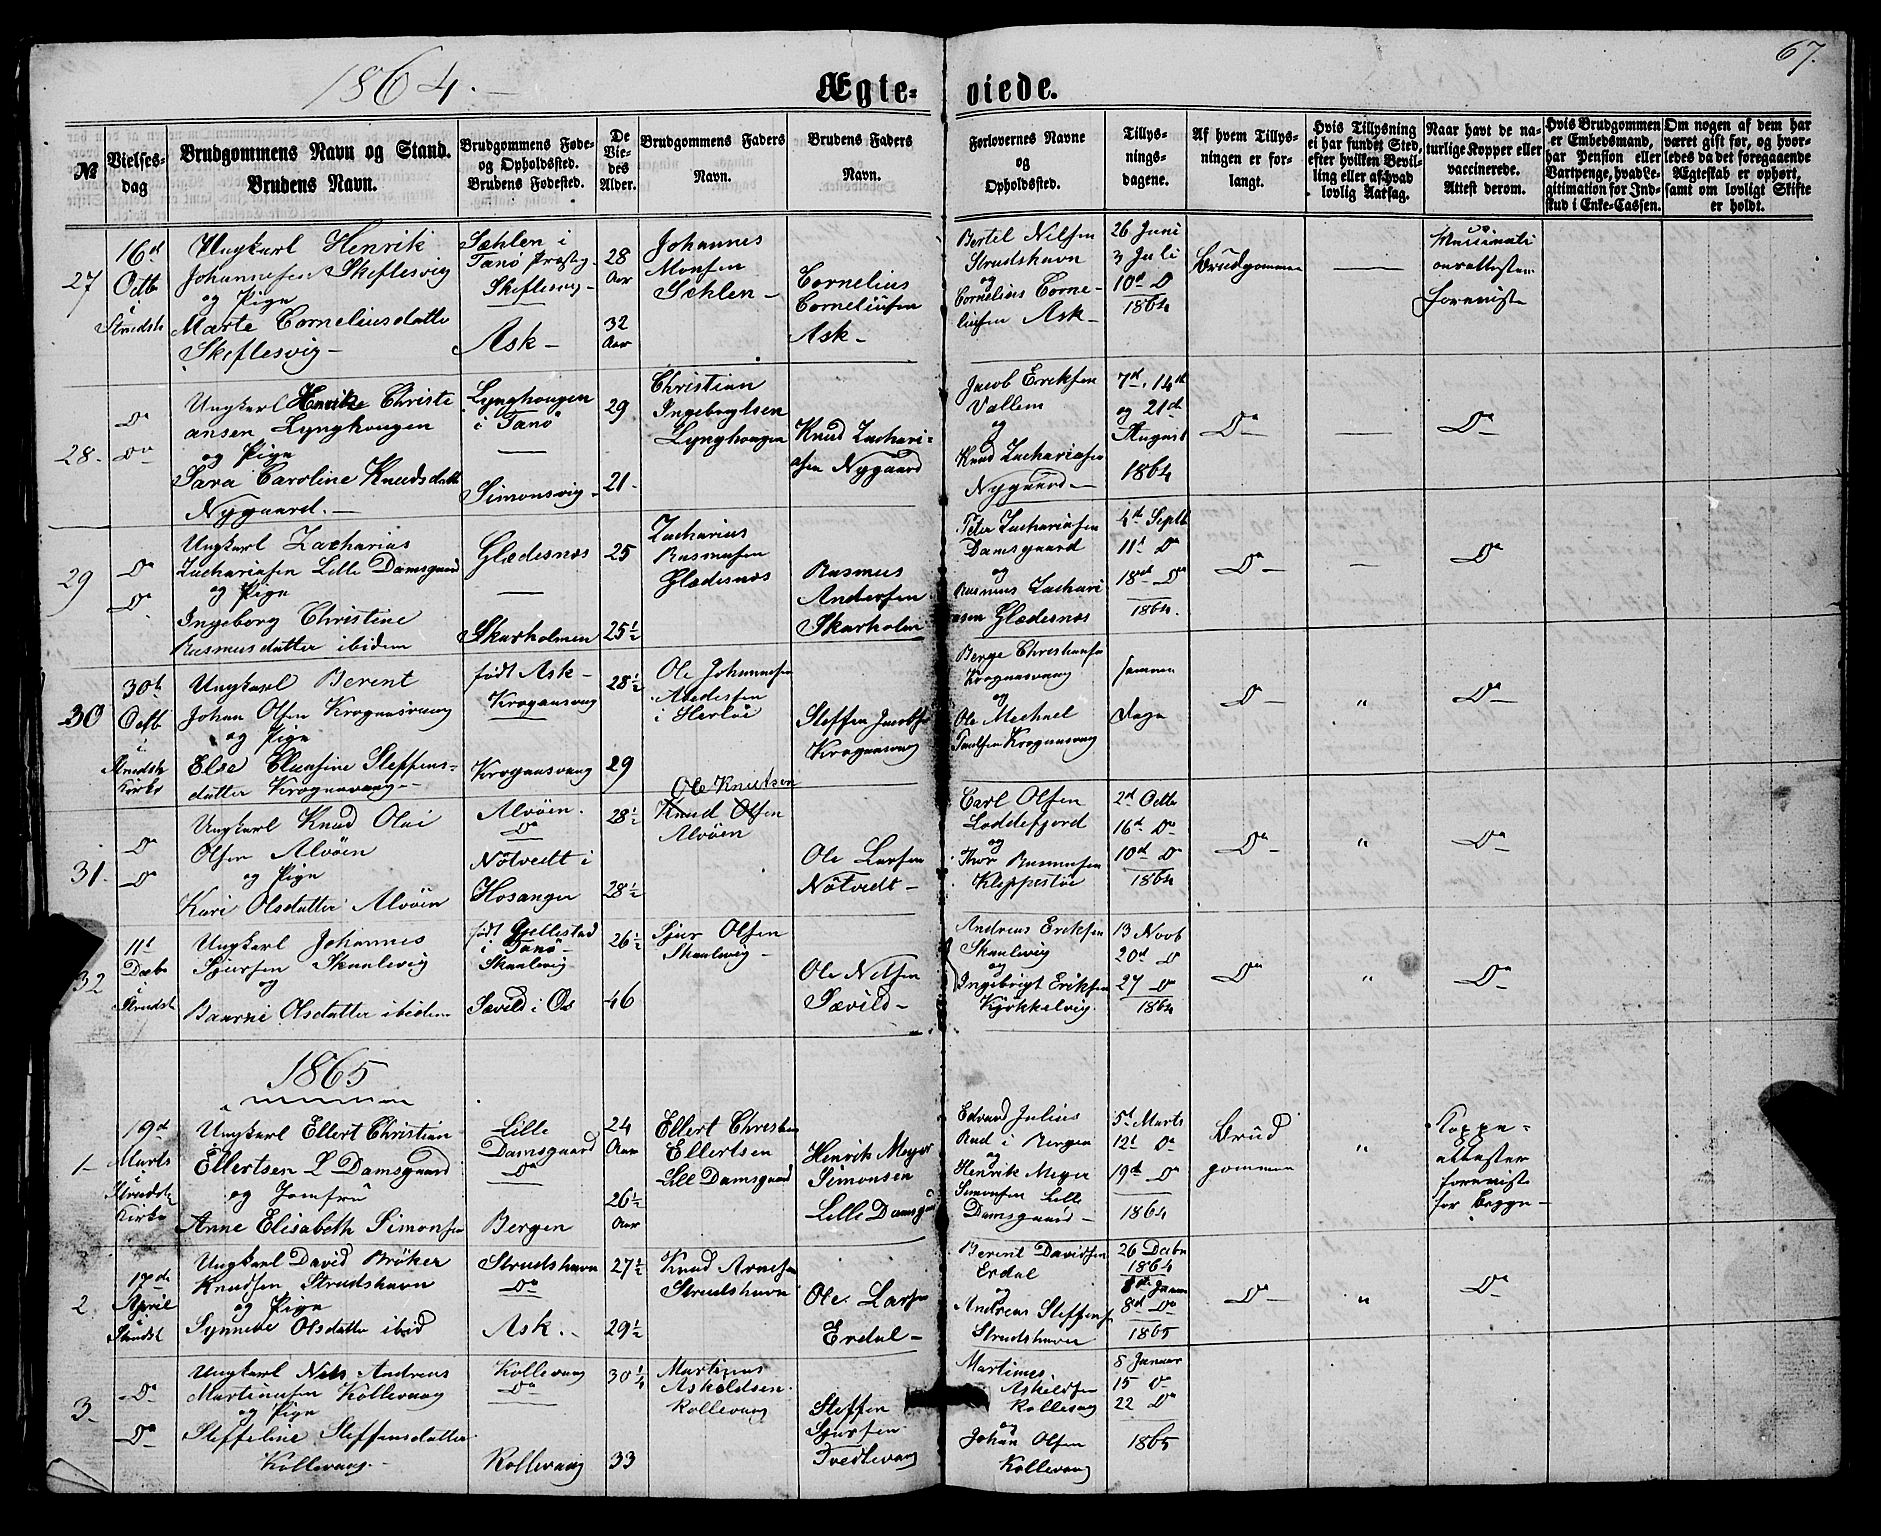 1864.
Ægte-
viede.
67.
№
Vielses-
dag
Brudgommens Navn og Stand.
Brudens Navn.
Brudgommens Føde-
og Opholdssted.
Brudens Fødested.
De
Vie-
des
Alder.
Brudgommens Faders
Navn.
Brudens Faders
Navn.
Forlovernes Navne
og
Opholdssted.
Tillys-
nings-
dagene.
Af hvem Tillys-
ningen er for-
langt.
Hvis Tillysning
ei har fundet Sted,
efter hvilken Bevil-
ling eller af hvad
lovlig Aarsag.
Naar havt de na-
turlige Kopper eller
vaccinerede.
Attest derom.
Hvis Brudgommen
er Embedsmand,
har Pension eller
Vartpenge, hvad Le-
gitimation for Ind-
skud i Enke-Cassen.
Om nogen af dem har
været gift før, og hvor-
ledes da det foregaaende
Ægteskab er ophørt,
samt om lovligt Skifte
er holdt.
27
16d
Octb
Strudsh
Ungkarl Henrik
Johannesen Skeflesvig
og Pige
Marte Corneliusdatte
Skeflesvig -
Sæhlen i
Fanø Præstg.
Skeflesvig -
Ask -
28
Aar
32
Aar
Johannes
Monsen
Sehlen -
Cornelius
Corneliusen
Ask -
Bertel Nilsen
Strudshavn
og
Cornelius Corne-
liusen Ask -
26 Juni
3 Juli
10d D
1864
Brudgommen
onsattester
foreviste
28.
Do
Do
Ungkarl Henrik Christi
ansen Lynghougen
og Pige
Sara Caroline Knudsdatt
Nygaard. -
Lynghougen
i Fanø
Simonsvig -
29
21.
Christian
Ingebrigtsen
Lynghougen
Knud Zachari-
asen Nygaard
Jacob Eriksen
Vallem
og
Knud Zachariasen
Nygaard -
7d, 14de
og 21de
August
1864
Do
Do
29
Do
Do
Ungkarl Zacharias
Zachariasen Lille Damsgaard
og Pige
Ingeborg Christine
Rasmusdatter ibidem
Glædesnæs
Skarholmen
25
25½
Zacharius
Rasmusen
Glædesnæs
Rasmus
Andersen
Skarholm
Peter Zachariasen
Damsgaard
og
Rasmus Zachari
asen Glædesnæs
4d Septb
11d Do
18de Do
1864.
Do
Do
30
30t
Octb
i
Strudsh
Kirke
Ungkarl Berent
Johan Olsen Krogaasvaag
og Pige
Else Elensine Steffens-
datter Krogaasvaag -
født Ask -
Krogaasvaag
Krogaasvaag
28½
29
Ole Johannesen
i Herløe
Steffen Jacobsen
Krogaasvaag
Berge Christiansen
Krogaasvaag
og
Ole Mechael
Paulsen Krogaasvaag
samme
Dage
Do
"
Do
31.
Do
Do
Ungkarl Knud Olai
Olsen Alvøen
og Pige
Kari Olsdatter Alvøen
Alvøen.
Do
Nôtvedt i
Hosanger
28½
28½
Ole Knutsen
Knud Olsen
Alvøen
Ole Larsen
Nôtvedt -
Carl Olsen
Loddefjord
og
Thor Rasmusen
Kleppestøe
2d Octb
16d Do
10d D
1864
Do
"
Do
32
11d
Decbr
i
Strudsh
Ungkarl Johannes
Sjursen Skaalevig
og
Olsdatter ibidem
født Gjellestad
i Fanø
Skaalevig
Sæveld i Os
26½
46
Sjur Olsen
Skaalevig -
Ole Nilsen
Sæveld -
Andreas Eriksen
Skaalevig
og
Ingebrigt Eriksen
Kjøkkelvig
13 Novb
20d D
27 D
1864
Do
"
Do
1865
1-
19d
Marts
Strudsh
Kirke
Ungkarl Ellert Christian
Ellertsen L Damsgaard
og Jomfru
Anne Elisabeth Simonsen
Lille
Damsgaard
Do
Bergen
24
Aar
26½
Aar
Ellert Christian
Ellertsen
Lille Damsgaard
Henrik Meyer
Simonsen
Lille Damsgaard
Edvard Julius
Rud i Bergen
og
Henrik Meyer
Simonsen Lille
Damsgaard -
5d Marts
12d Do
19d Do
1864
Brud
gommen
"
Koppe-
attester
foreviste
for begge -
2.
17de
April
Strudsh
Ungkarl David Brøker
Knudsen Strudshavn
og Pige
Synneve Olsdatter ibid
Strudshavn
Do
Ask. -
27½
29½
Knud Arnesen
Strudshavn
Ole Larsen
Erdal -
Berent Davidsen
Erdal
og
Andreas Steffensen
Strudshavn
26 Decbr
1864
8d Do
1865
Do
"
Do
3.
Do
Do
Ungkarl Nils Andreas
Martinusen Kollevaag
og Pige
Steffeline Steffensdatter
Kollevaag -
Kollevaag
Do
Kollevaag
30¼
33
Martinus
Askeldsen
Kollevaag
Steffen
Sjursen
Tvedtevaag
Martines
Askeldsen
Kollevaag
og
Johan Olsen
Kollevaag
8 Januar
15 D
22 D
1865